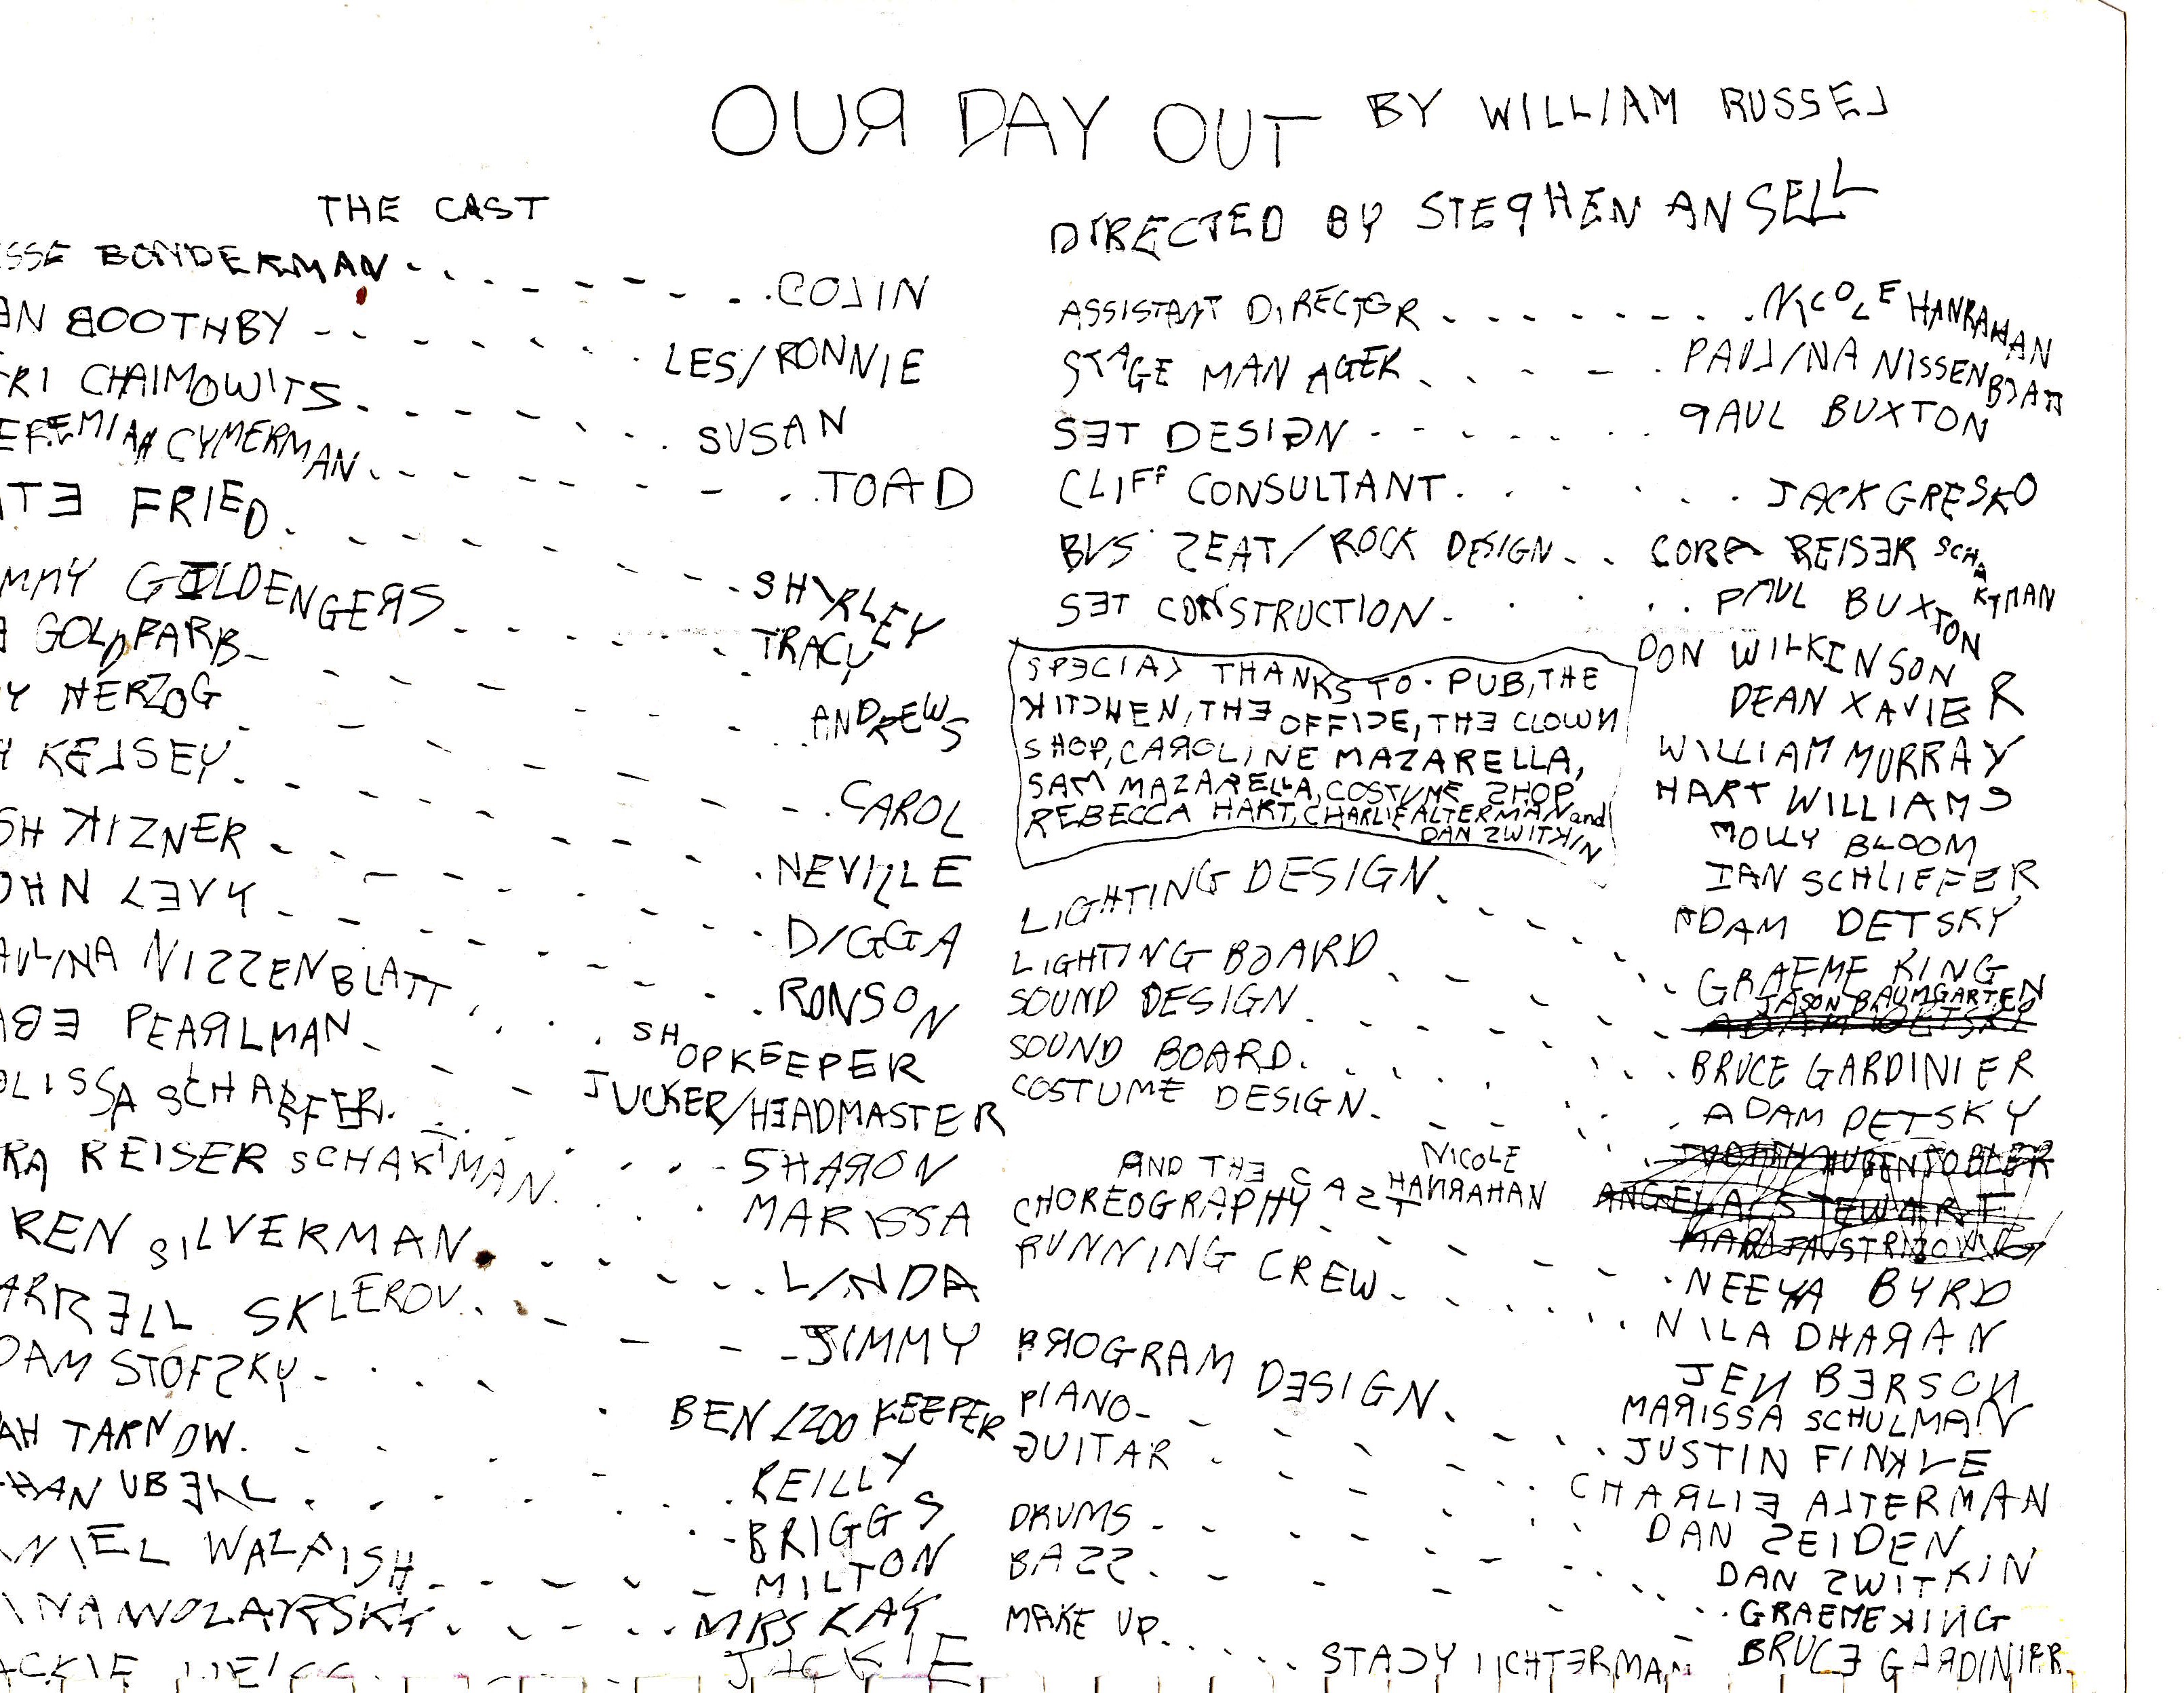 OUR DAY OUT BY WILLIAM RUSSEL
THE CAST
SSE BONDERMAN . . . . . . . . . COLIN
EN BOOTHBY . . . . . . . LES/RONNIE
FRI CHAIMOWITS . . . . . . . SUSAN
EREMIAH CYMERMAN . . . . . . . . TOAD
ATE FRIED . . . . . . . . SHYRLEY
MMY GOLDENGERS . . . . . . TRACY
GOLDFARB . . . . . . . ANDREWS
Y HERZOG . . . . . . . CAROL
KELSEY . . . . . . . NEVILLE
SH KIZNER . . . . . . . DIGGA
OHN LEVY . . . . . . . RONSON
AULINA NISSENBLATT . . . . SHOPKEEPER
ABE PEARLMAN . . . . JUCKER/HEADMASTER
OLISSA SCHARFER . . . . . . SHARON
RA REISER SCHAKTMAN . . . . MARISSA
REN SILVERMAN . . . . . . LINDA
ARRELL SKLEROV . . . . . . JIMMY
DAM STOFSKY . . . . . BEN/ZOO KEEPER
AH TARNOW . . . . . . REILLY
HAN UBELL . . . . . . BRIGGS
NIEL WALFISH . . . . . . MILTON
NA WOLARSKY . . . . . . MRS KAY
ACKIE WEISS . . . . JACKIE
DIRECTED BY STEPHEN ANSELL
ASSISTANT DIRECTOR . . . . . . . . NICOLE HANRAHAN
STAGE MANAGER . . . . . PAULINA NISSENBLATT
SET DESIGN . . . . . . . PAUL BUXTON
CLIFF CONSULTANT . . . . . . JACK GRESKO
BUS SEAT/ROCK DESIGN . . CORA REISER SCHAKTMAN
SET CONSTRUCTION . . . . . PAUL BUXTON
DON WILKINSON
DEAN XAVIER
WILLIAM MURRAY
HART WILLIAMS
MOLLY BLOOM
IAN SCHLIEFER,
ADAM DETSKY
SPECIAL THANKS TO · PUB, THE
KITCHEN, THE OFFICE, THE CLOWN
SHOP, CAROLINE MAZARELLA,
SAM MAZARELLA, COSTUME SHOP
REBECCA HART, CHARLIE ALTERMAN and
DAN ZWITKIN
LIGHTING DESIGN . . . . . . GRAEME KING
LIGHTING BOARD . . . . . . JASON BAUMGARTEN
ADAM DETSKY
SOUND DESIGN . . . . . . . BRUCE GARDINIER
SOUND BOARD . . . . . . . ADAM DETSKY
COSTUME DESIGN . . . . . .
ANGELA STEWART
AND THE CAST NICOLE HANRAHAN
CHOREOGRAPHY . . . . . . NEEYA BYRD
RUNNING CREW . . . . . . NILA DHARAN
JEN BERSON
MARISSA SCHULMAN
PROGRAM DESIGN . . . . . JUSTIN FINKLE
PIANO . . . . . . . CHARLIE ALTERMAN
GUITAR . . . . . . . DAN SEIDEN
DRUMS . . . . . . . DAN ZWITKIN
BASS . . . . . . . GRAEME KING
BRUCE GARDINIER
MAKE UP . . . . . . STACY LICHTERMAN